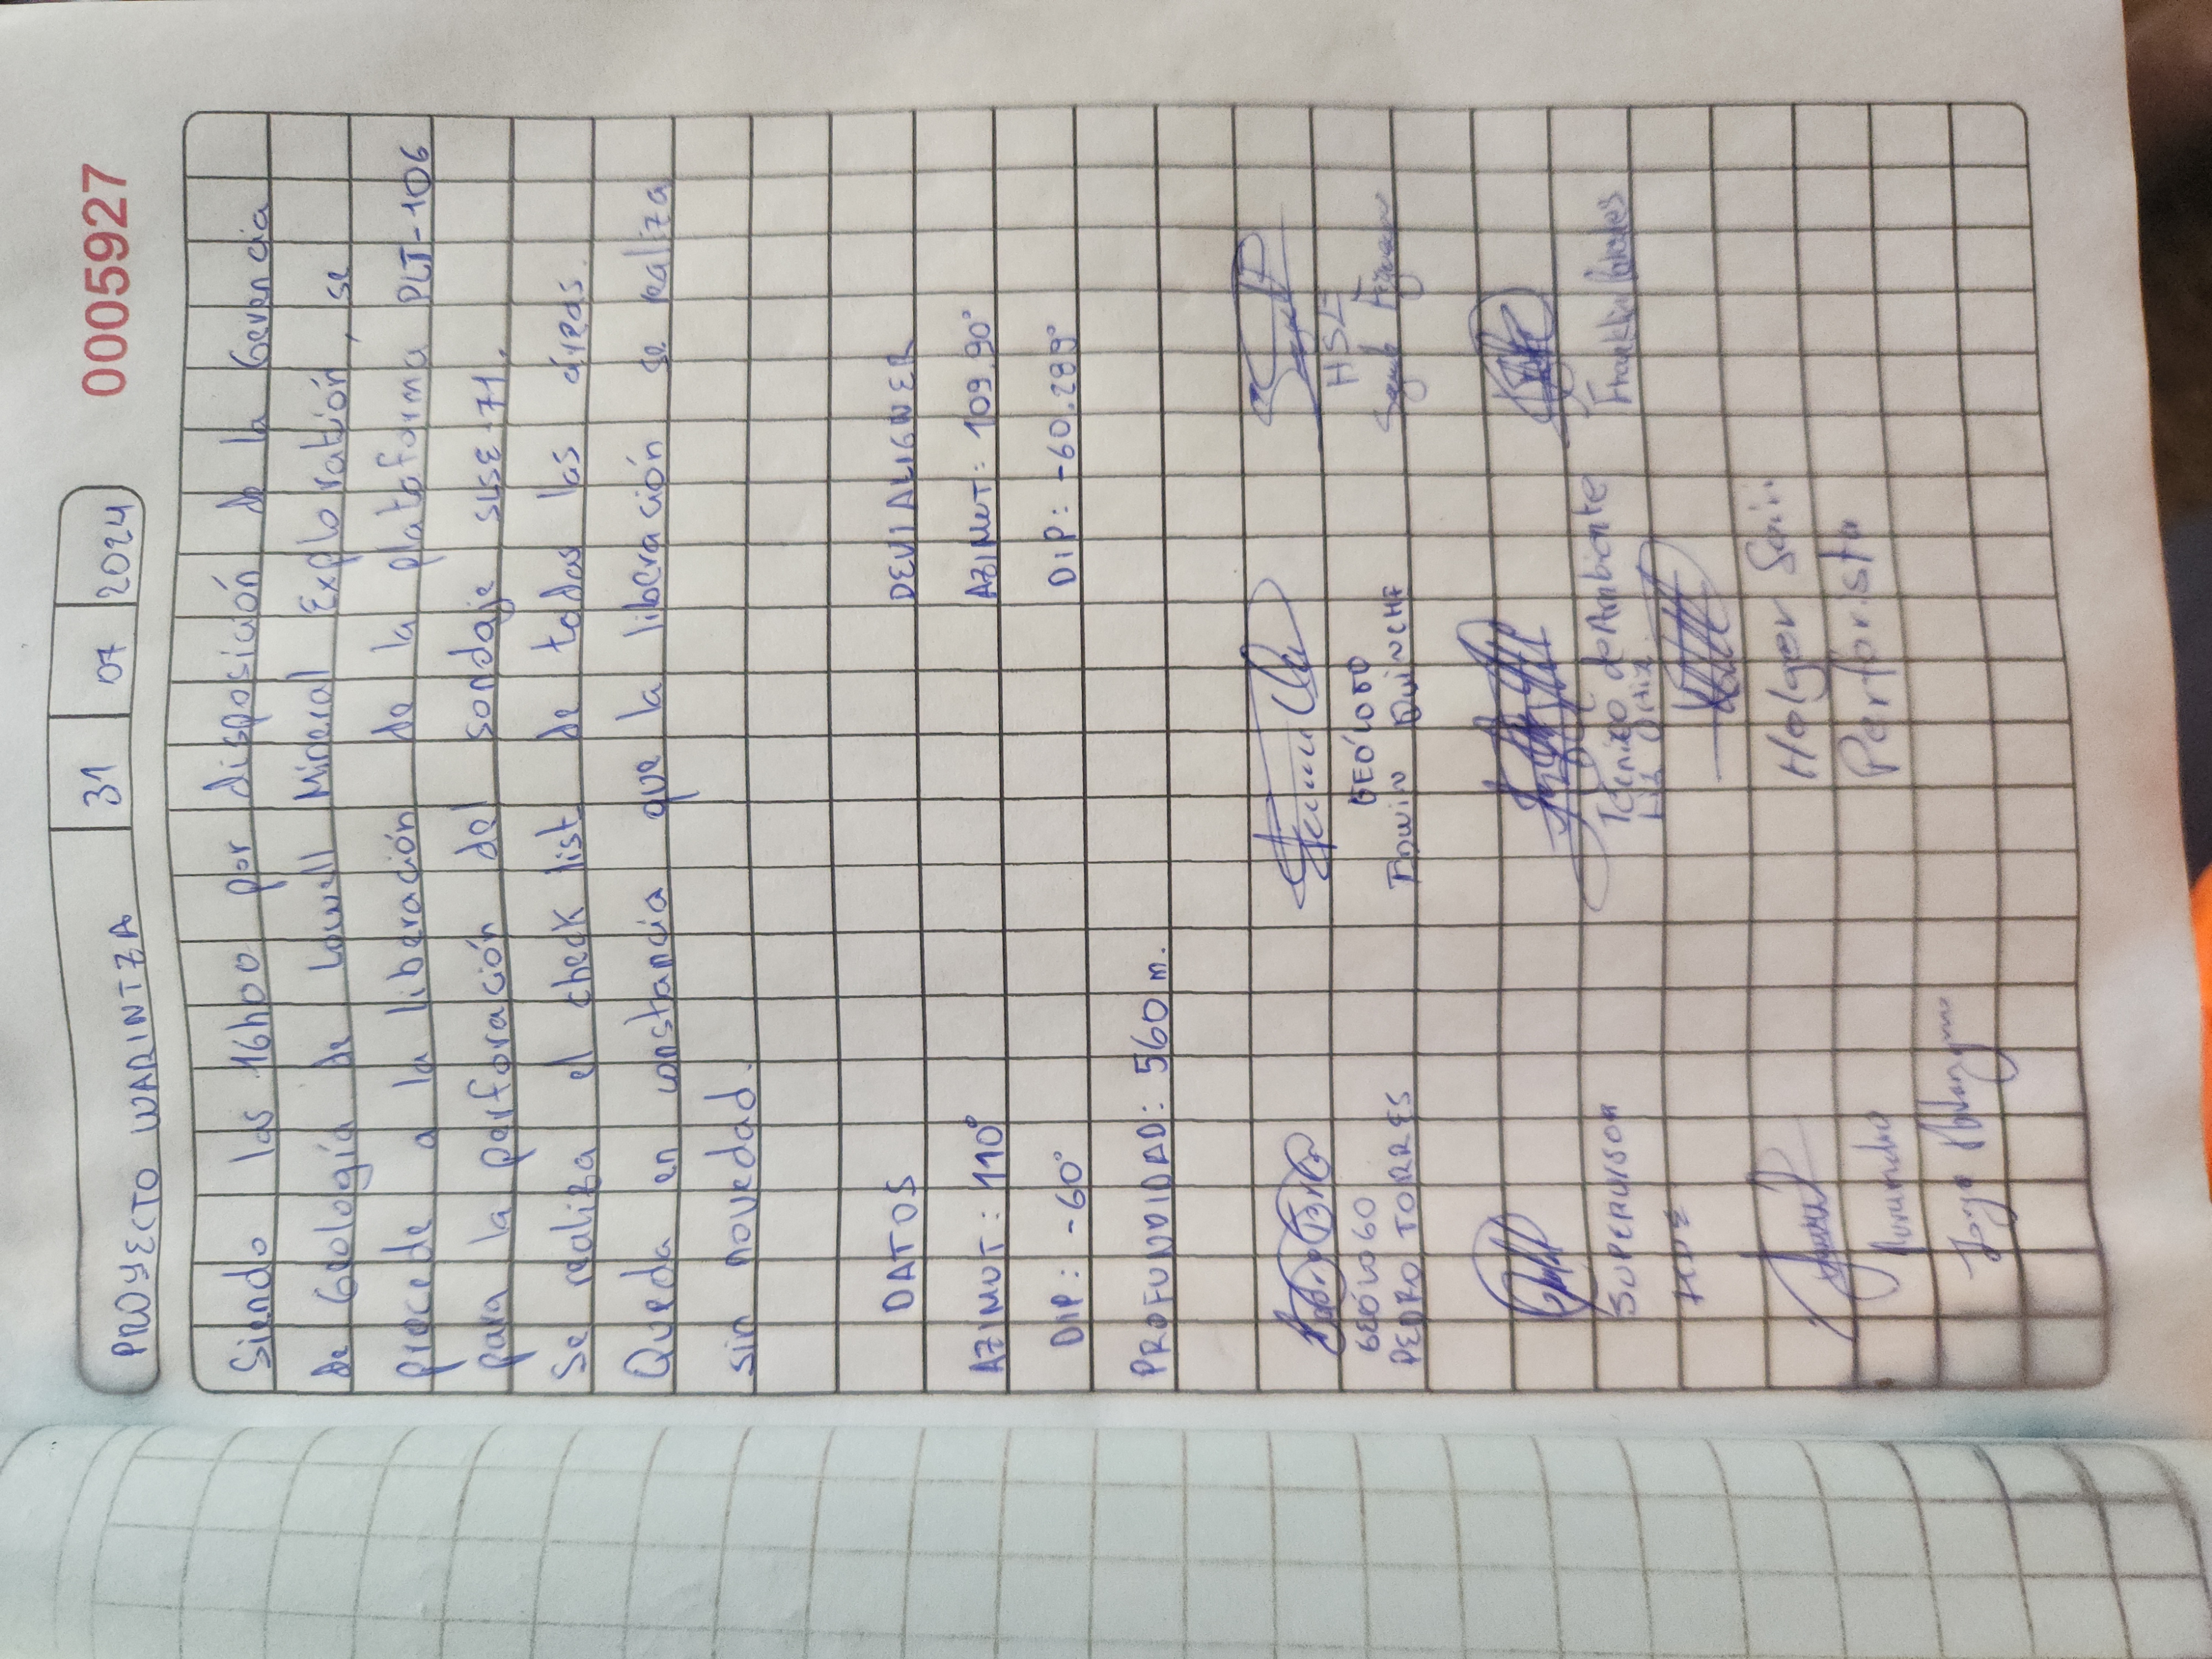 0005927
PROYECTO WARINTZA 31 07 2024
Siendo las 16h00 por disposición de la Gerencia
de Geología de Lowell Mineral Exploratión, se
procede a la liberación de la plataforma PLT-106
para la perforación del sondaje SLSE-71.
Se realiza el check list de todas las áreas.
Queda en constancia que la liberación se realiza
sin novedad.
DATOS DEVIALIGNER
AZIMUT: 110° AZIMUT: 109.90°
DIP: -60° DIP: -60.289°
PROFUNDIDAD: 560m.
GEÓLOGO GEÓLOGO HSE
PEDRO TORRES DARWIN QUINCHE
SUPERVISOR Técnico de Ambiente Franklin
Holger
Perforista
Jorge